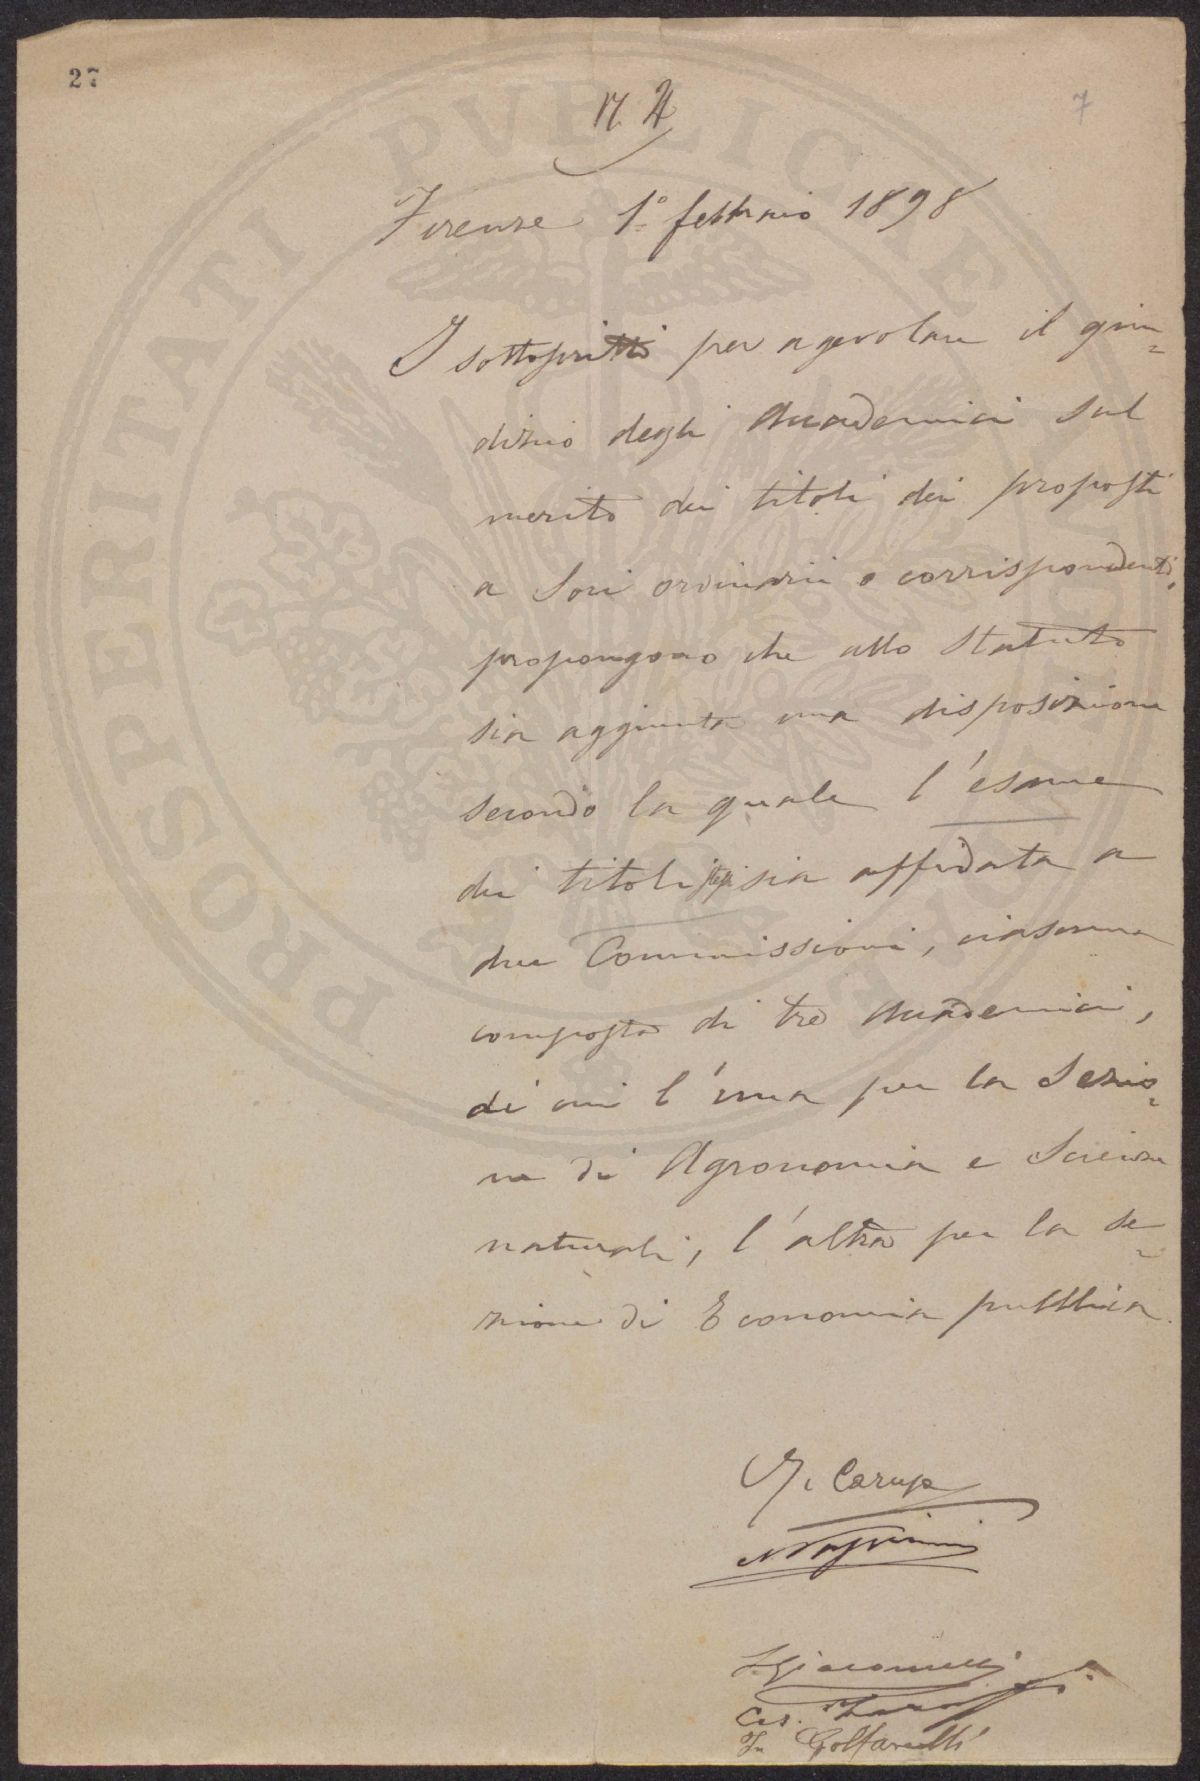 27
N. 4
7
Firenze 1º febbraio 1898
I sottoscritti per agevolare il giu=
dizio degli Accademici sul
merito dei titoli dei proposti
a Soci ordinarii o corrispondenti,
propongono che allo Statuto
sia aggiunta una disposizione
secondo la quale l'esame
dei titoli stessi sia affidata a
due Commissioni, ciascuna
composta di tre Accademici,
di cui l'una per la Sezio=
ne di Agronomia e Scienze
naturali, l'altra per la se=
zione di Economia pubblica.
Caruso
Passerini
Giacomelli
Ces.
Golfarelli
PROSPERITATI PVBLICAE AVGENDAE